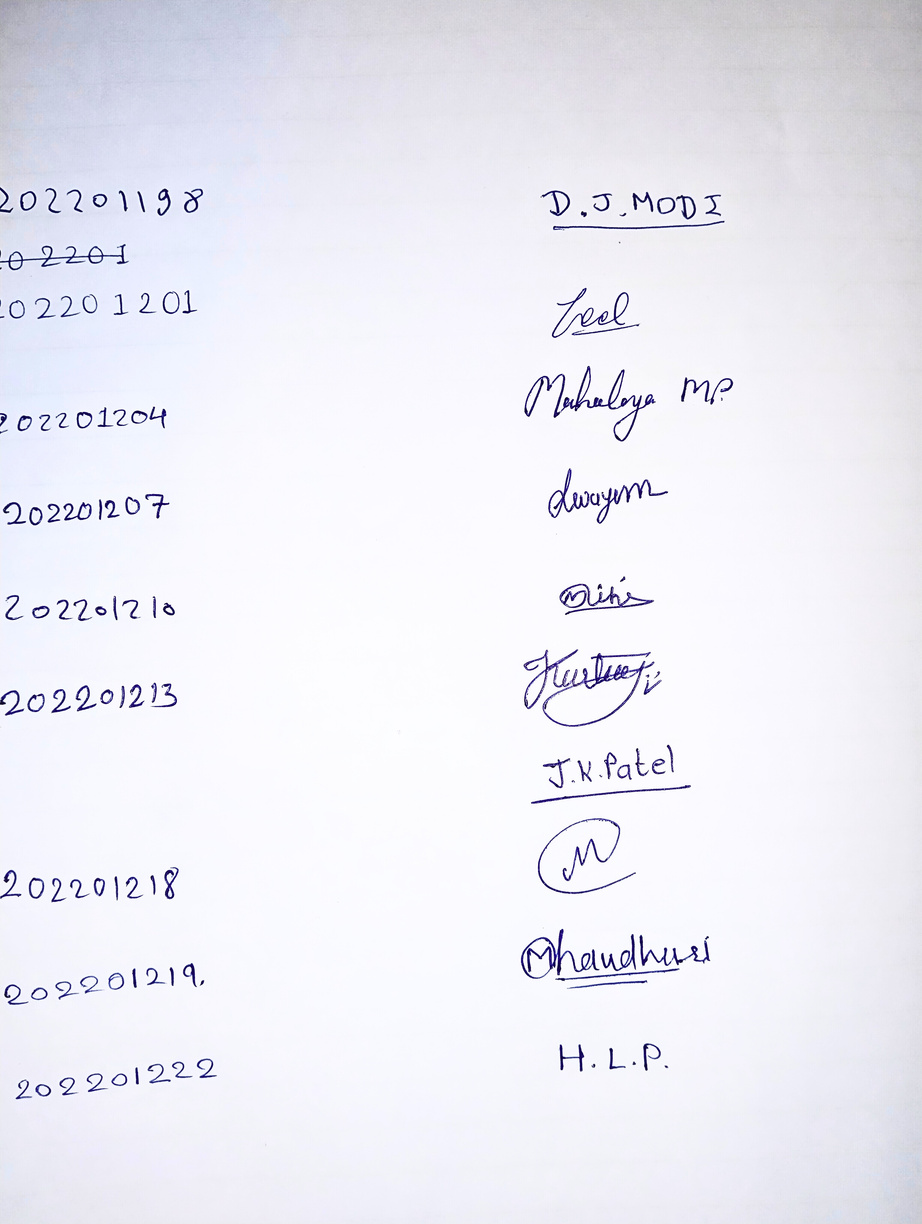 202201198 D.J.MODI
202201
202201201 Zeel
202201204 M.P.
202201207
202201210
202201213
J.K.Patel
202201218 M
202201219. Mhaudhuri
202201222 H.L.P.